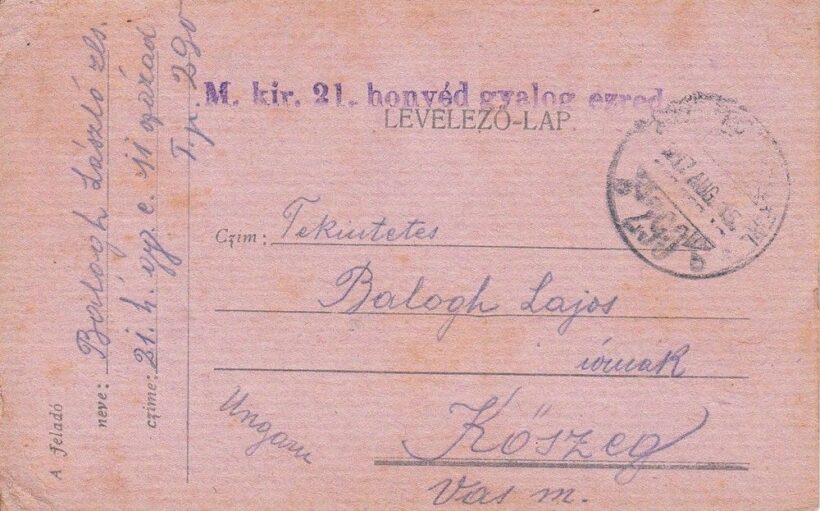 M. kir. 21. honvéd gyalog ezred
LEVELEZŐ-LAP
Czim: Tekintetes
Balogh Lajos
úrnak
Kőszeg
Vas m.
Ungarn
A feladó
neve: Balogh László zls.
czime: 21. h. gy. e. 11 század
T. p. 290
917 AUG. 15.
290